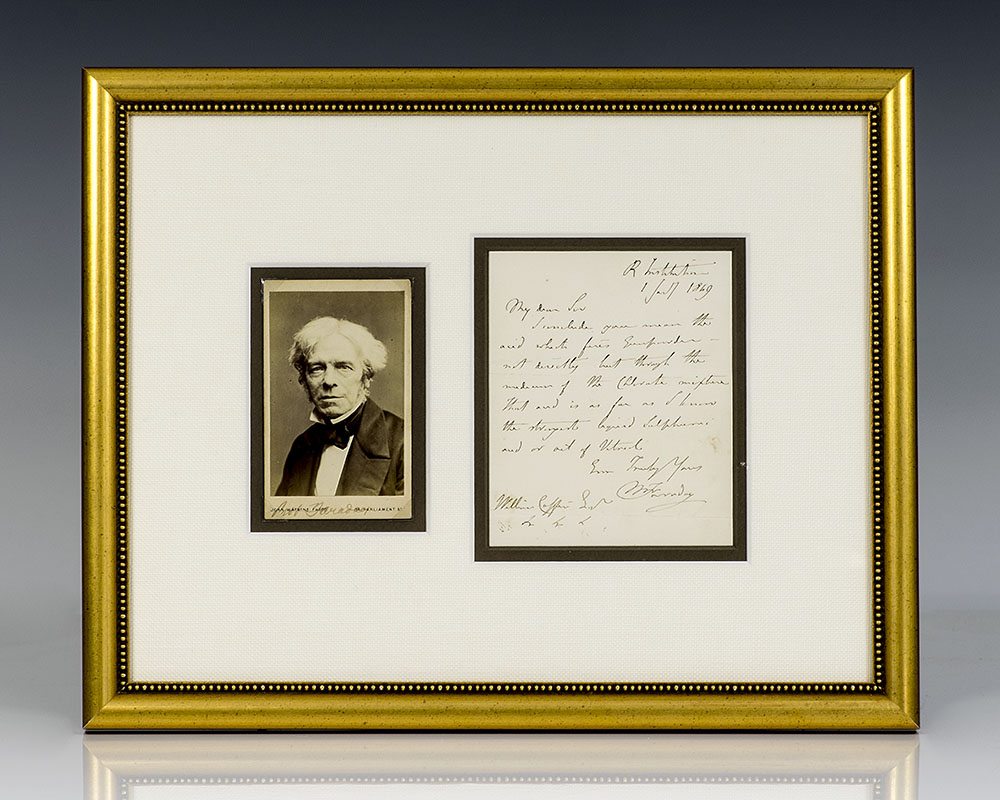 JOHN WATKINS PARLIAMENT ST
Prof Faraday
R Institution
1849
My dear Sir
I conclude you mean the
acid which fires Gunpowder -
not directly but through the
medium of the Chlorate mixture
That acid is as far as I know
the strongest liquid Sulphuric
acid or oil of Vitriol
Ever Truly Yours
M Faraday
William Esqr
&c &c &c